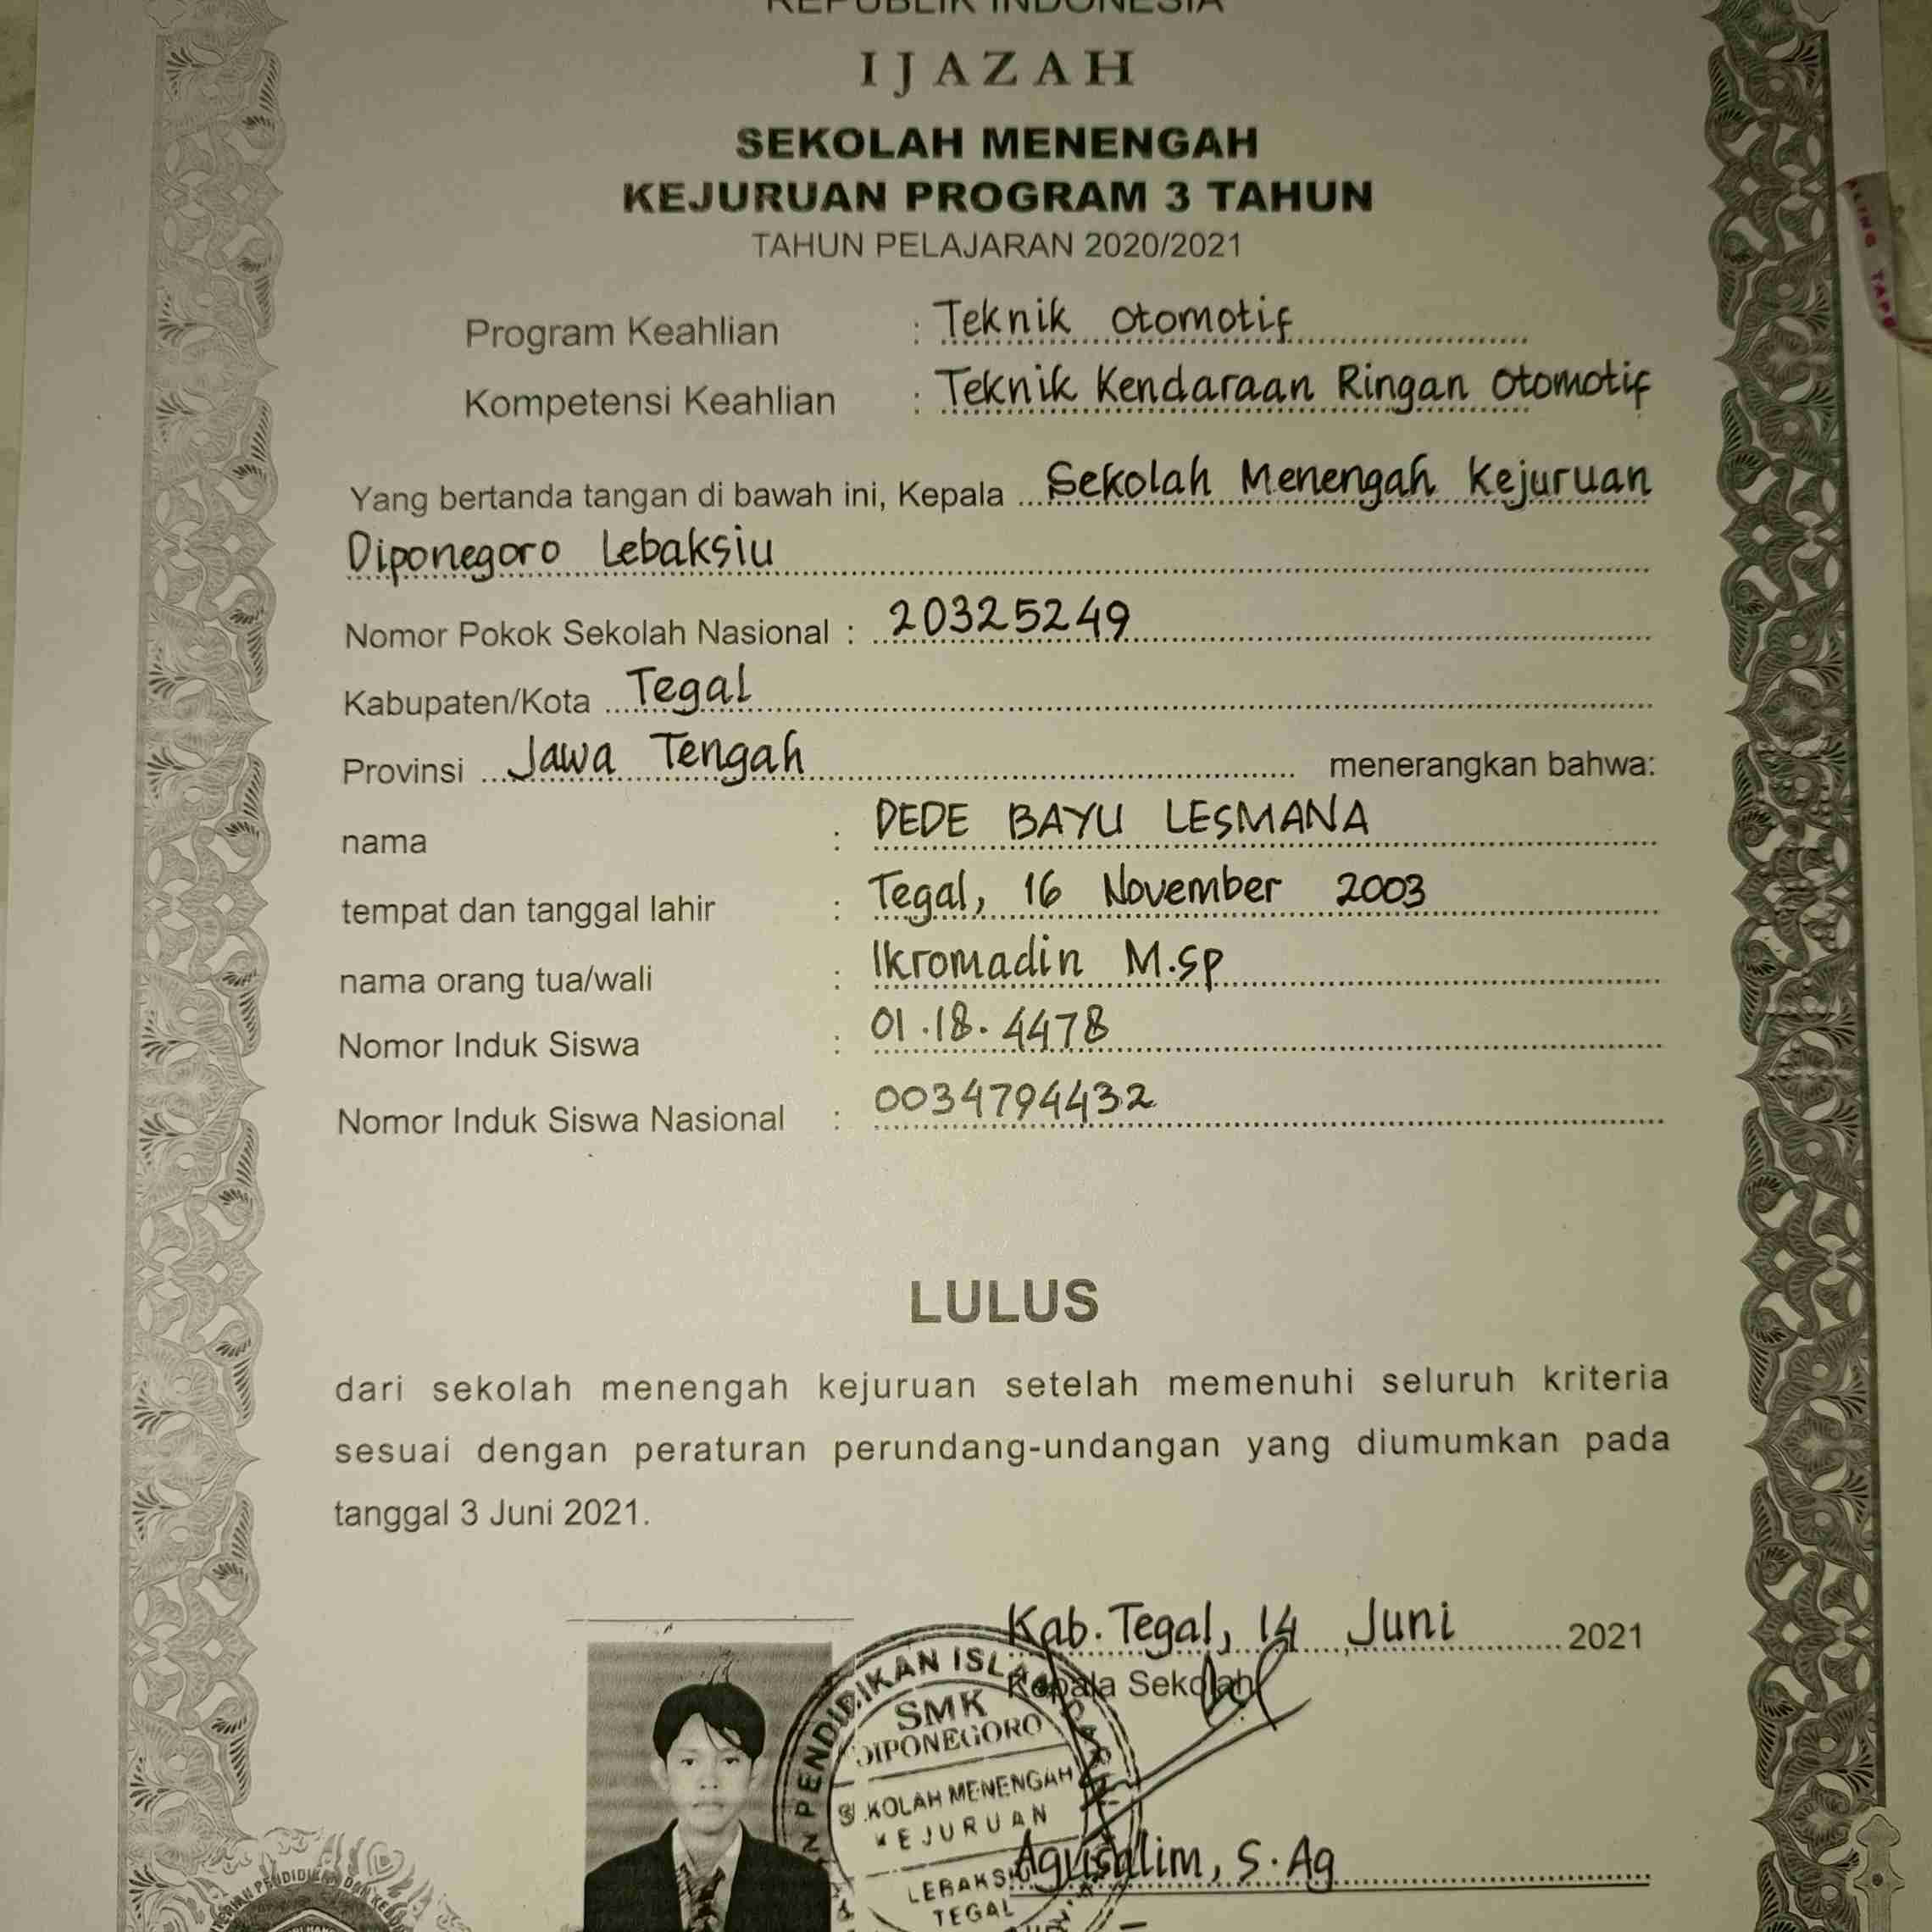 REPUBLIK INDONESIA
IJAZAH
SEKOLAH MENENGAH
KEJURUAN PROGRAM 3 TAHUN
TAHUN PELAJARAN 2020/2021
Program Keahlian : Teknik Otomotif
Kompetensi Keahlian : Teknik Kendaraan Ringan Otomotif
Yang bertanda tangan di bawah ini, Kepala Sekolah Menengah Kejuruan
Diponegoro Lebaksiu
Nomor Pokok Sekolah Nasional : 20325249
Kabupaten/Kota Tegal
Provinsi Jawa Tengah menerangkan bahwa:
nama : DEDE BAYU LESMANA
tempat dan tanggal lahir : Tegal, 16 November 2003
nama orang tua/wali : Ikromadin M.sp
Nomor Induk Siswa : 01.18.4478
Nomor Induk Siswa Nasional : 0034794432
LULUS
dari sekolah menengah kejuruan setelah memenuhi seluruh kriteria
sesuai dengan peraturan perundang-undangan yang diumumkan pada
tanggal 3 Juni 2021.
Kab. Tegal, 14 Juni 2021
Kepala Sekolah
Agusalim, S.Ag
PENDIDIKAN ISLAM
SMK
DIPONEGORO
SEKOLAH MENENGAH
KEJURUAN
LEBAKSIU
TEGAL
TAPE